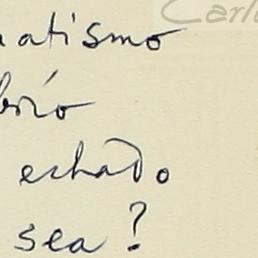 Carlo
matismo
echado.
sea?